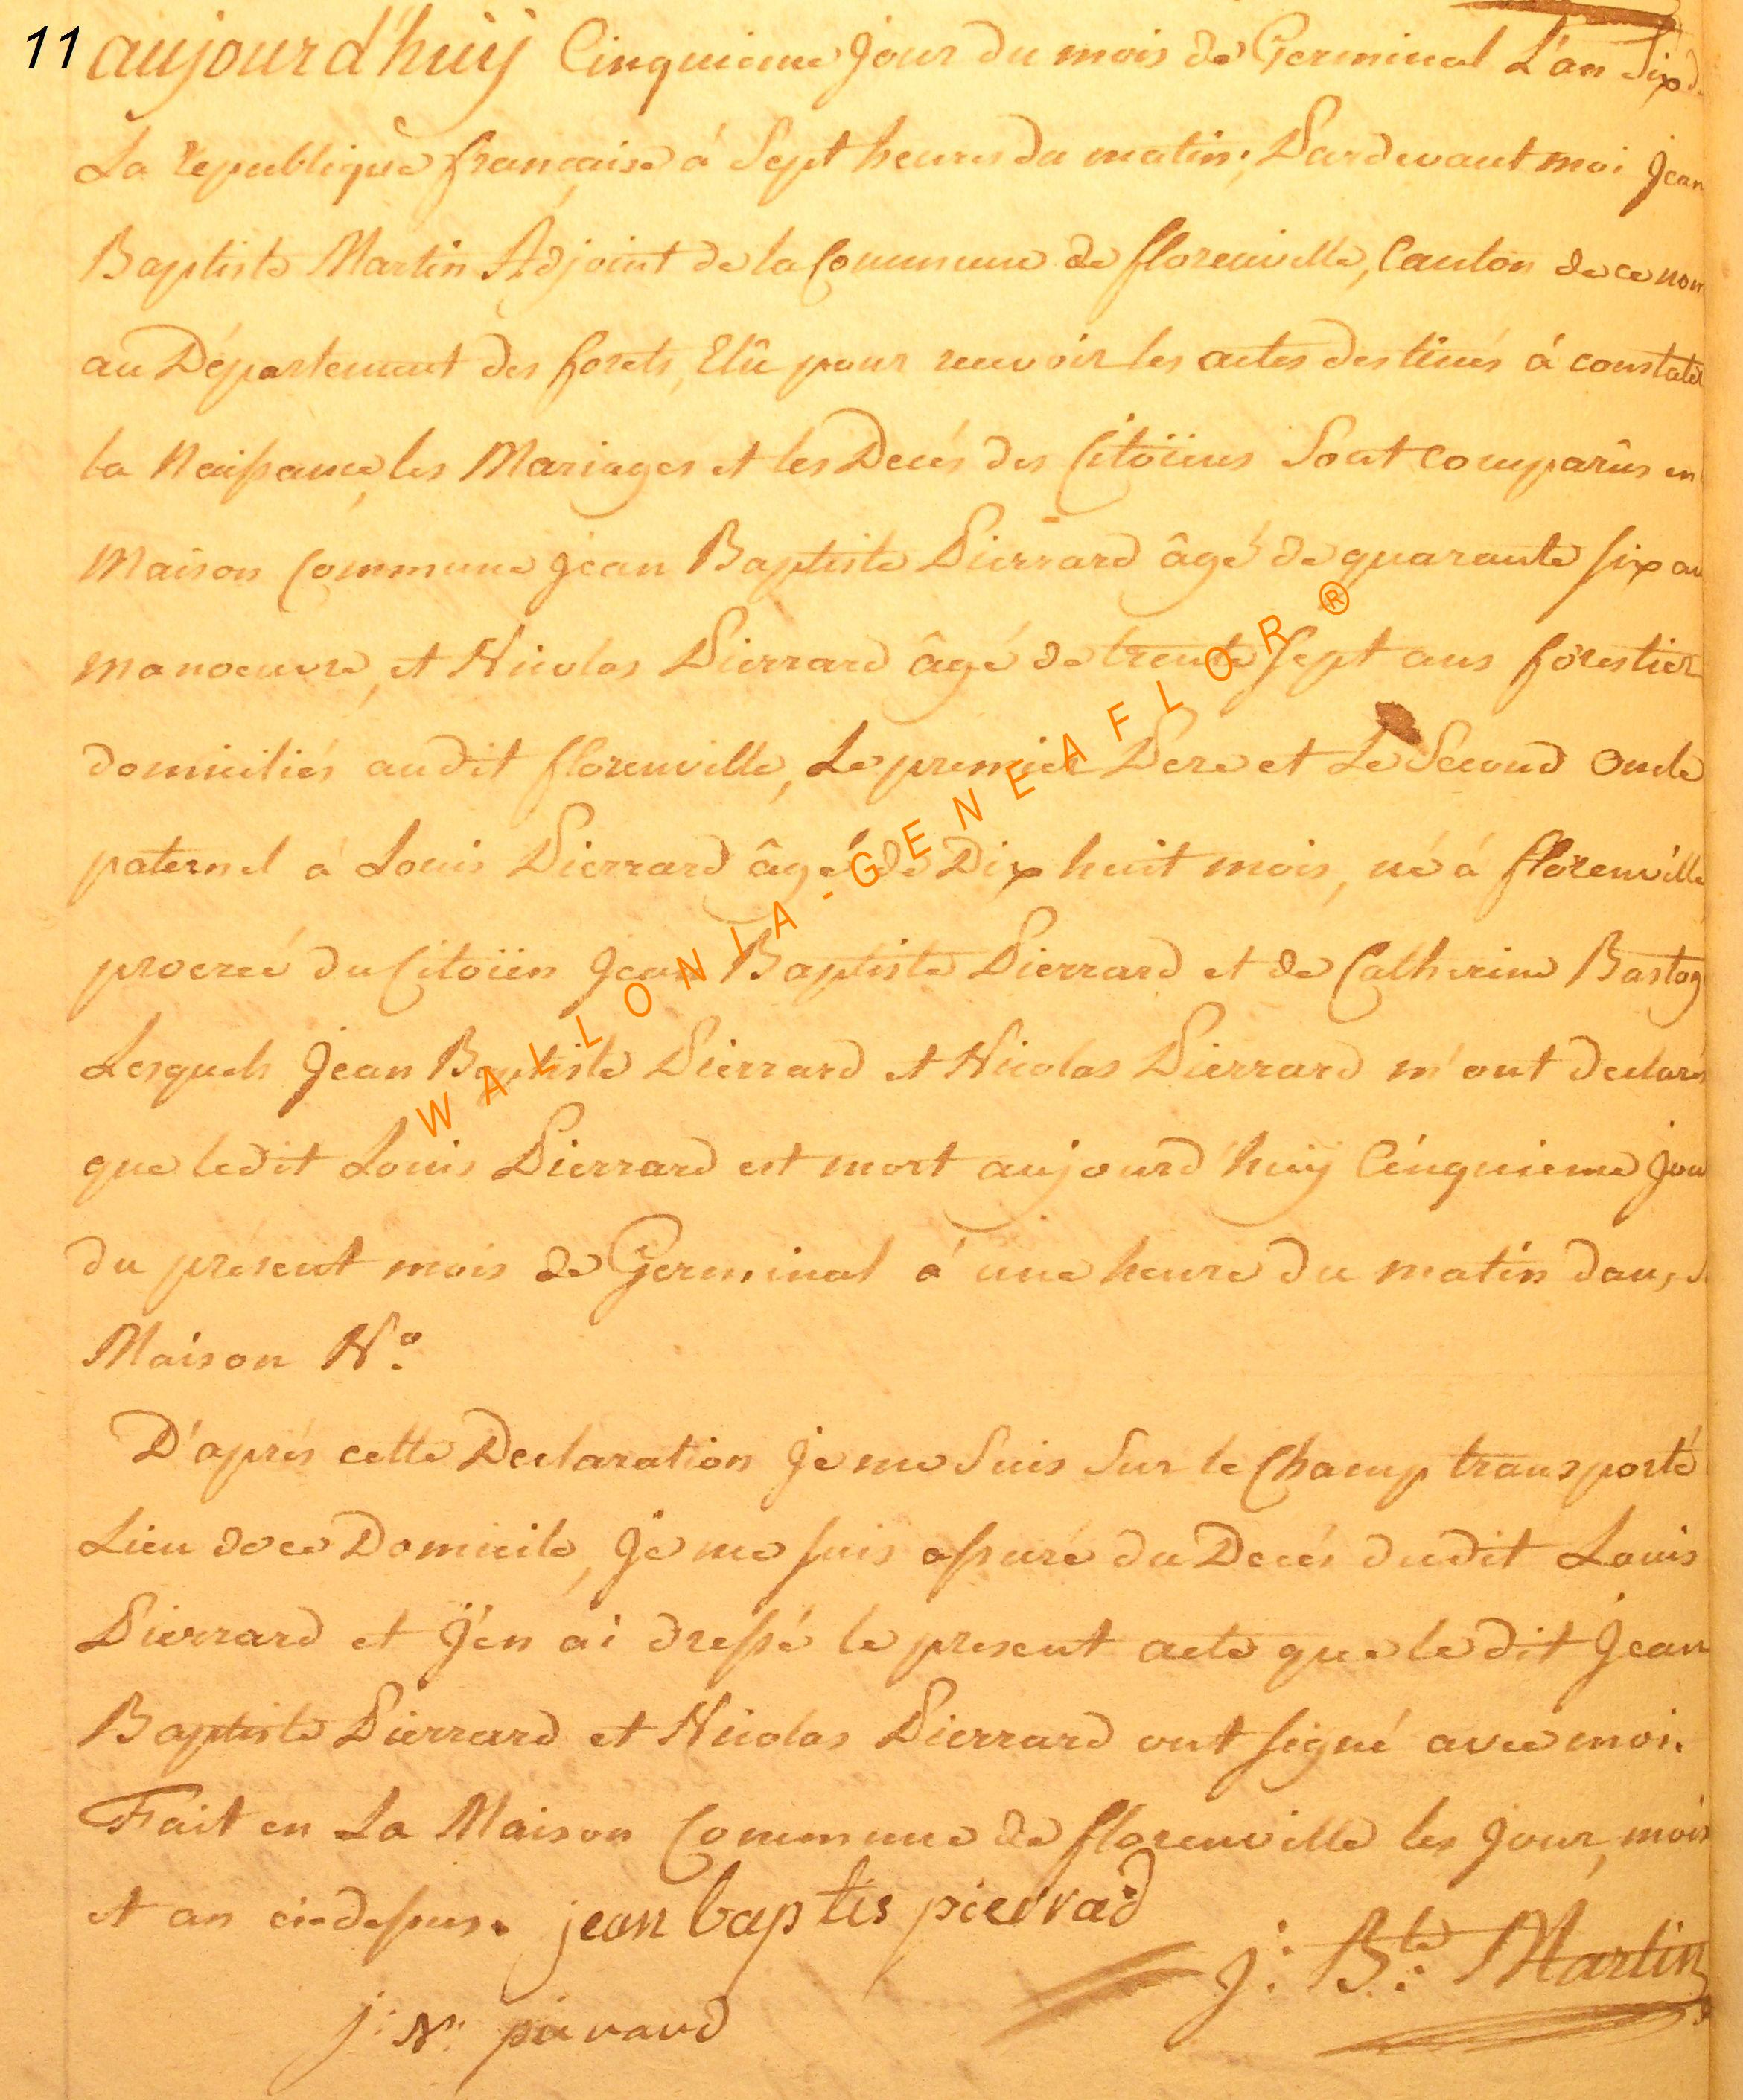 11 aujourd'huij Cinquieme Jour du mois de Germinal L'an Six d
La republique française á Sept heures du matin, Pardevant moi Jean
Baptiste Martin Adjoint de la Commune de florenville, Canton de ce nom
au Département des forets, Elû pour recevoir les actes destinés á constater
la Naissance, les Mariages et les Decés des Citoïens Sont comparûs en
Maison Commune Jean Baptiste Pierrard âgé de quarante six an
manoeuvre, et Nicolas Pierrard âgé de trente Sept ans forestier
domiciliés audit florenville, Le premier Pere et Le Second Oncle
paternel á Louis Pierrard âgé de Dix huit mois, né á florenville
procréé du Citoïen Jean Baptiste Pierrard et de Catherine Bastog
Lesquels Jean Baptiste Pierrard et Nicolas Pierrard m'ont declaré
que ledit Louis Pierrard est mort aujourd'huij Cinquieme Jou
du présent mois de Germinal á une heure du matin dans s
Maison N.o
D'aprés cette Declaration Je me Suis Sur le Champ transporté
Lieu de ce Domicile, Je me suis assuré du Decés dudit Louis
Pierrard et J'en ai dressé le present acte que le dit Jean
Baptiste Pierrard et Nicolas Pierrard ont signé avec moi.
Fait en La Maison Commune de florenville les Jour, mois
et an ci-dessus. jean baptis pierrad
j: B.te Martin
j: N: pierard
WALLONIA-GENEAFLOR ®